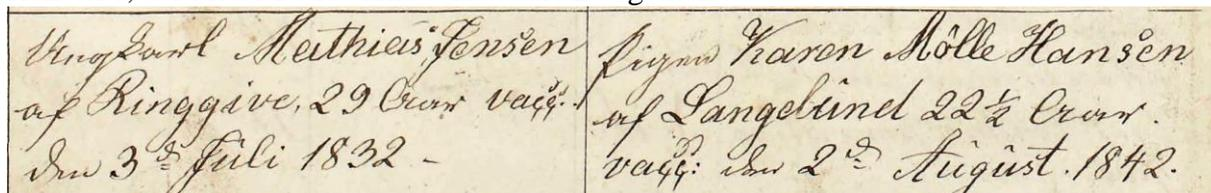 Ungkarl Mathias Jensen
af Ringgive, 29 Aar vacc:
den 3d Juli 1832 -
Pigen Karen Mölle Hansen
af Langelund 22 ½ Aar.
vacc: den 2d August. 1842.